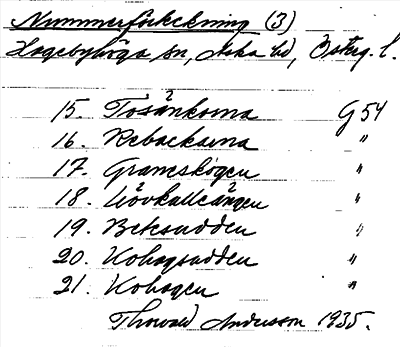 Nummerförteckning (3)
Hagebyhöga sn, Aska hd, Österg. l.
15. Tosånkorna G 54
16. Rebackarna "
17. Granskogen "
18. Lövkalleängen "
19. Betesudden "
20. Kohagsudden "
21. Kohagen "
Thorvald Andersson 1935.